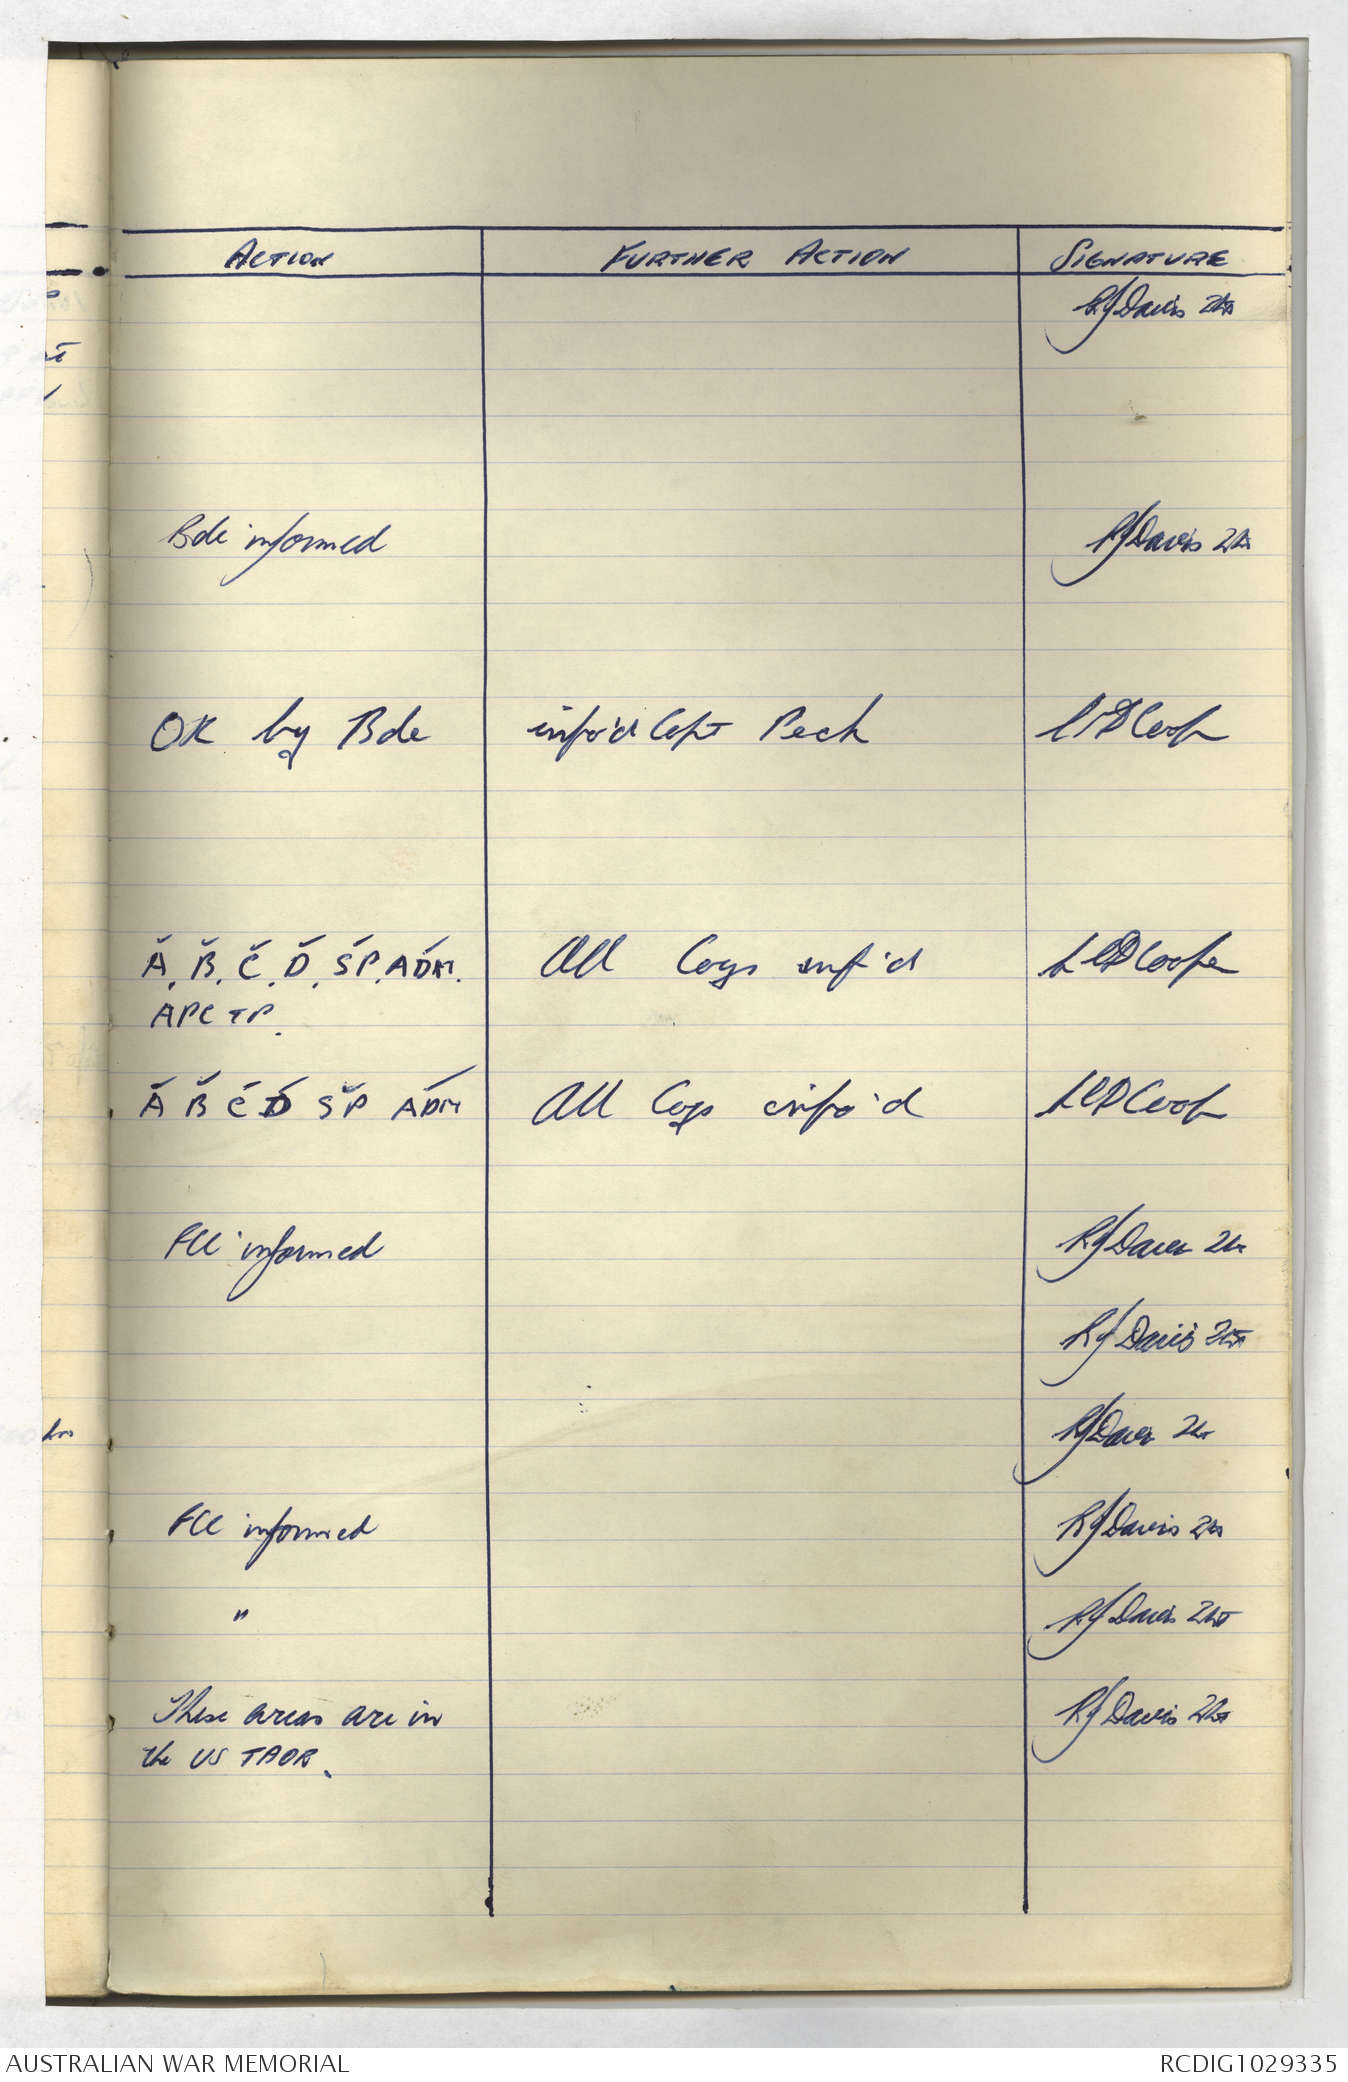 ACTION FURTHER ACTION SIGNATURE
RJDavis 2Lt
Bde informed RJDavis 2Lt
OK by Bde info'd Capt Peck LCDCoop
A, B, C, D, SP, ADM. All Coys inf'd LCDCoope
APC TP.
A B C D SP ADM All Coys info'd LCDCoop
informed RJDavis 2Lt
RJDavis 2Lt
RJDavis 2Lt
informed RJDavis 2Lt
" RJDavis 2Lt
These areas are in RJDavis 2Lt
the US TAOR.
AUSTRALIAN WAR MEMORIAL RCDIG1029335